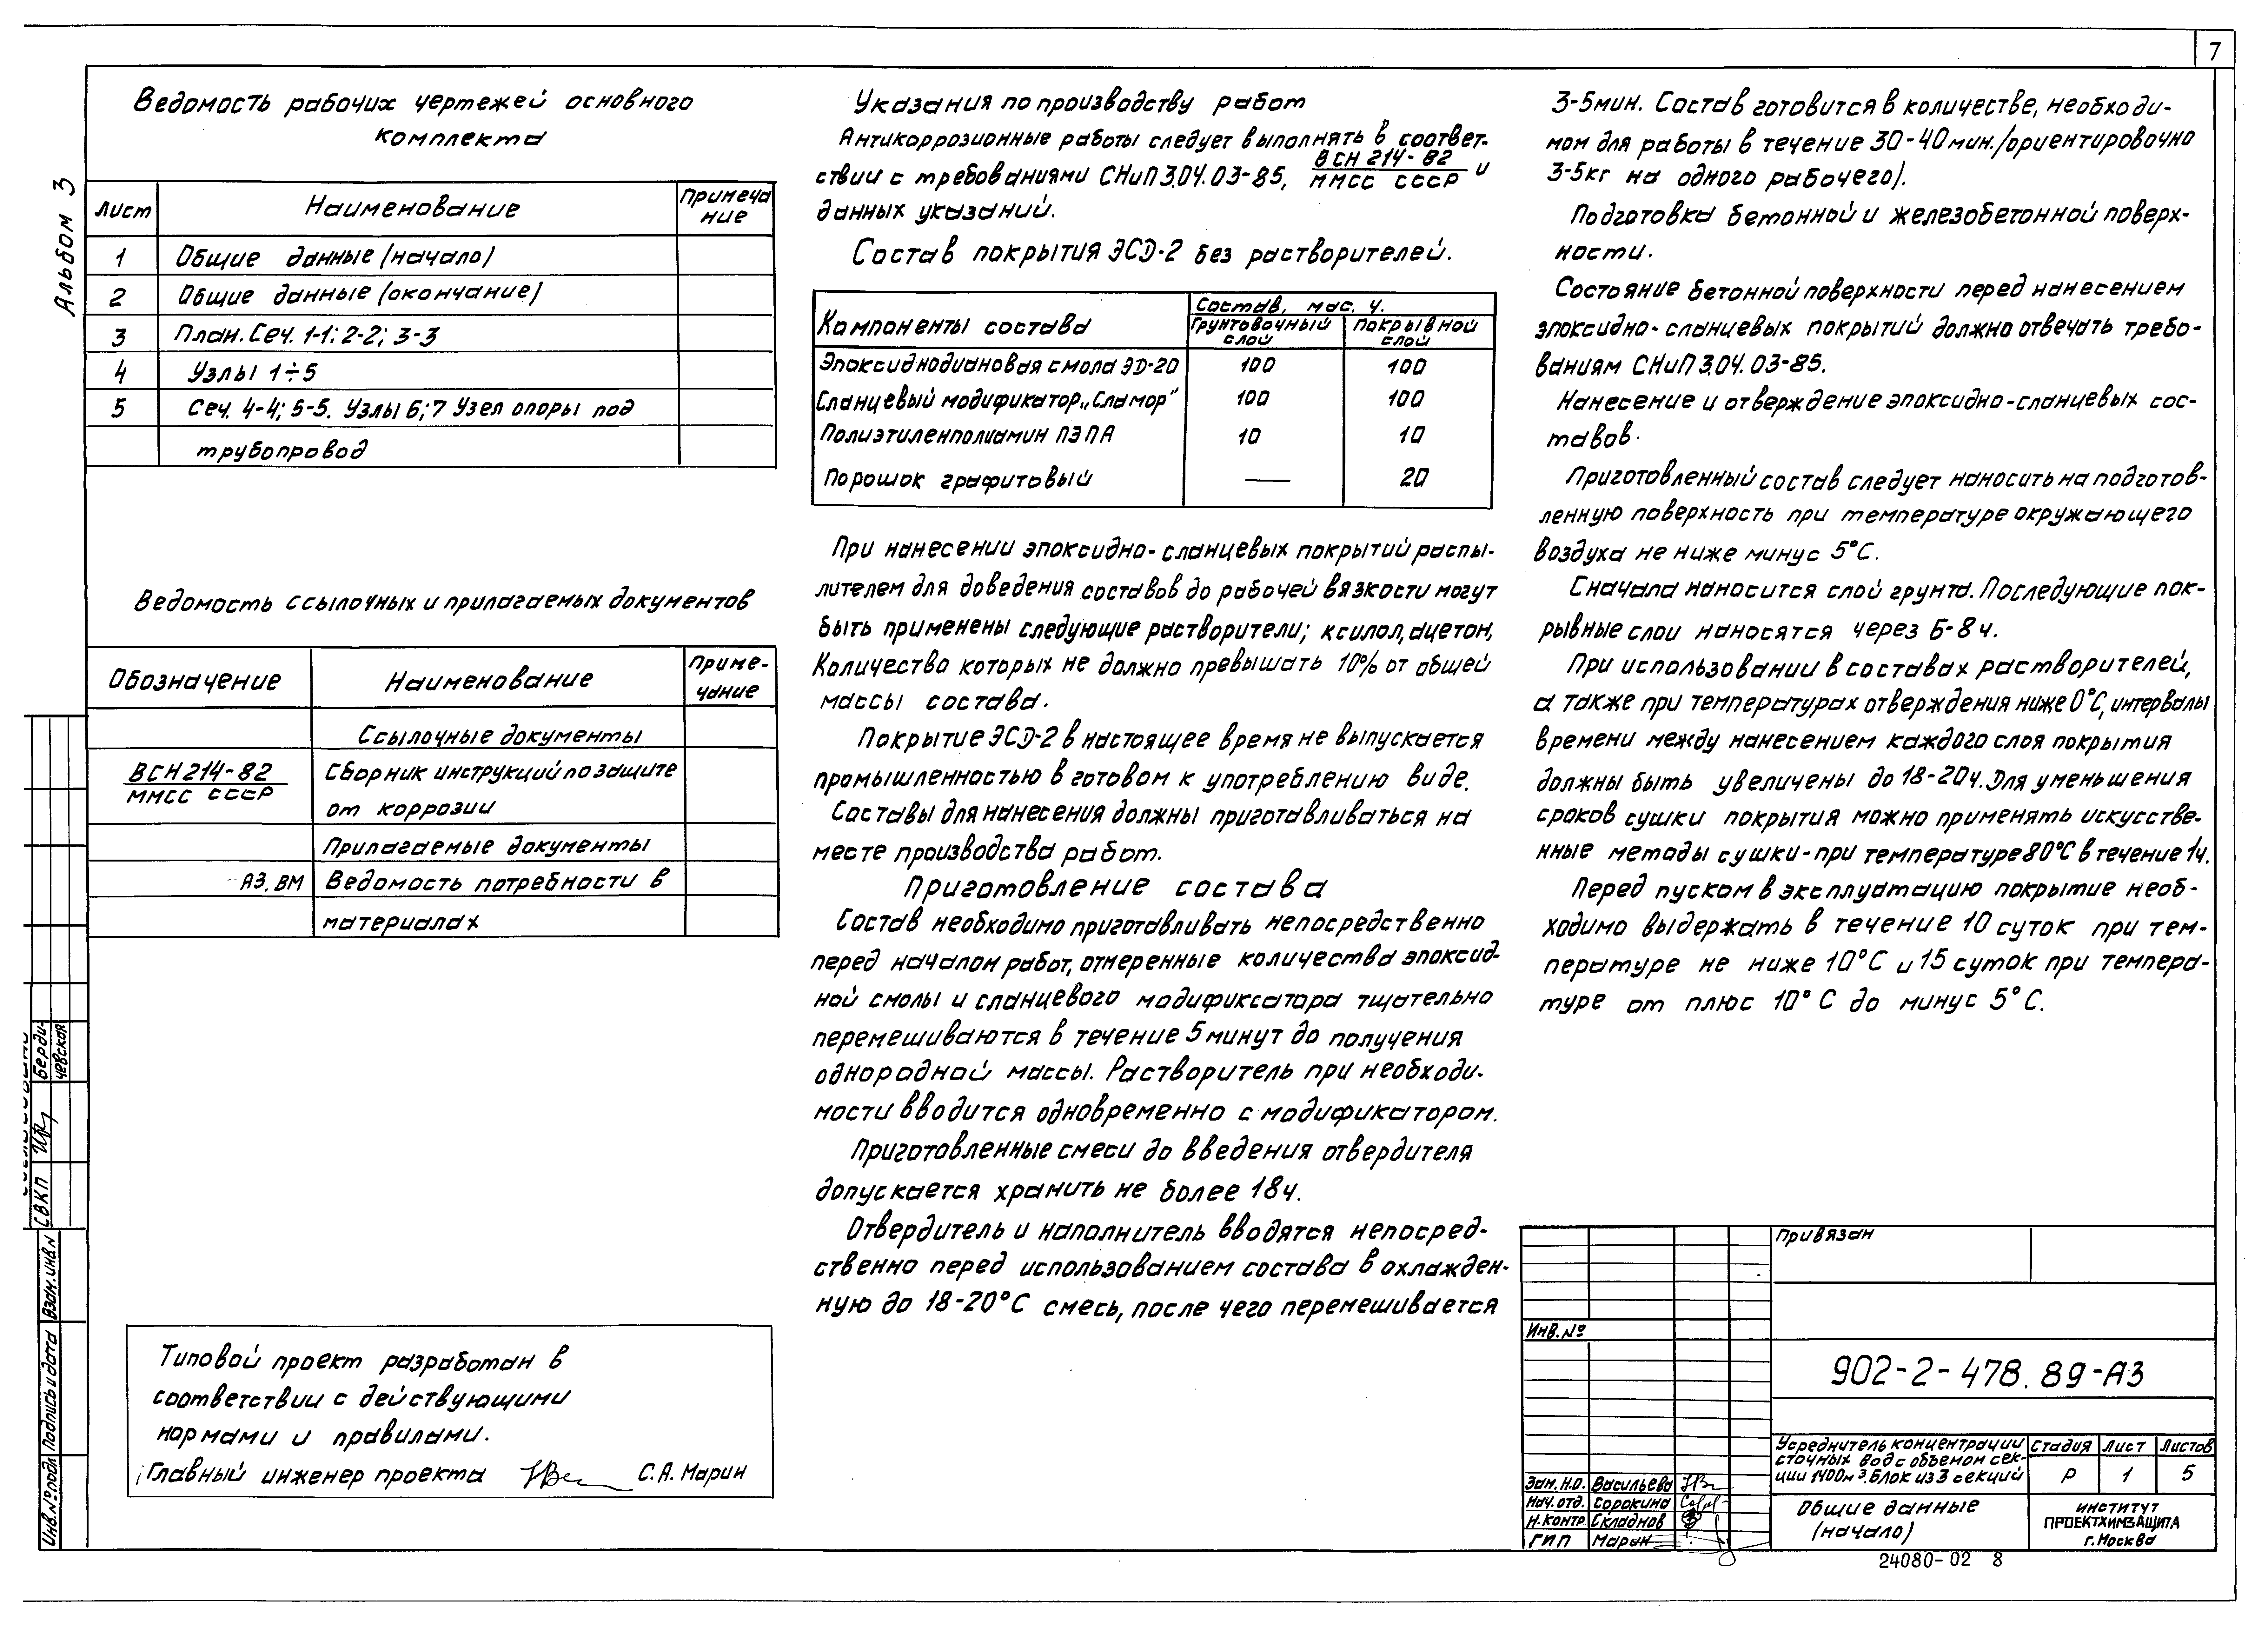 7
Альбом 3
Ведомость рабочих чертежей основного
комплекта
Лист Наименование Примеча
ние
1 Общие данные (начало)
2 Общие данные (окончание)
3 План. Сеч. 1-1; 2-2; 3-3
4 Узлы 1÷5
5 Сеч. 4-4; 5-5. Узлы 6; 7 Узел опоры под
трубопровод
Ведомость ссылочных и прилагаемых документов
Обозначение Наименование Приме-
чание
Ссылочные документы
ВСН 214-82 Сборник инструкций по защите
ММСС СССР от коррозии
Прилагаемые документы
АЗ. ВМ Ведомость потребности в
материалах
Типовой проект разработан в
соответствии с действующими
нормами и правилами.
Главный инженер проекта С.А. Марин
Указания по производству работ
Антикоррозионные работы следует выполнять в соответ-
ствии с требованиями СНиП 3.04.03-85, ВСН 214-82 и
ММСС СССР
данных указаний.
Состав покрытия ЭСД-2 без растворителей.
Компоненты состава Состав, мас. ч.
Грунтовочный слой Покрывной слой
Эпоксиднодиановая смола ЭД-20 100 100
Сланцевый модификатор „Сламор" 100 100
Полиэтиленполиамин ПЭПА 10 10
Порошок графитовый — 20
При нанесении эпоксидно-сланцевых покрытий распы-
лителем для доведения составов до рабочей вязкости могут
быть применены следующие растворители; ксилол, ацетон,
количество которых не должно превышать 10% от общей
массы состава.
Покрытие ЭСД-2 в настоящее время не выпускается
промышленностью в готовом к употреблению виде.
Составы для нанесения должны приготавливаться на
месте производства работ.
Приготовление состава
Состав необходимо приготавливать непосредственно
перед началом работ, отмеренные количества эпоксид-
ной смолы и сланцевого модификсатора тщательно
перемешиваются в течение 5 минут до получения
однородной массы. Растворитель при необходи-
мости вводится одновременно с модификатором.
Приготовленные смеси до введения отвердителя
допускается хранить не более 18ч.
Отвердитель и наполнитель вводятся непосред-
ственно перед использованием состава в охлажден-
ную до 18-20°С смесь, после чего перемешивается
3-5мин. Состав готовится в количестве, необходи-
мом для работы в течение 30-40мин. /ориентировочно
3-5кг на одного рабочего).
Подготовка бетонной и железобетонной поверх-
ности.
Состояние бетонной поверхности перед нанесением
эпоксидно-сланцевых покрытий должно отвечать требо-
ваниям СНиП 3.04.03-85.
Нанесение и отверждение эпоксидно-сланцевых сос-
тавов.
Приготовленный состав следует наносить на подготов-
ленную поверхность при температуре окружающего
воздуха не ниже минус 5°С.
Сначала наносится слой грунта. Последующие пок-
рывные слои наносятся через 6-8ч.
При использовании в составах растворителей,
а также при температурах отверждения ниже 0°С, интервалы
времени между нанесением каждого слоя покрытия
должны быть увеличены до 18-20ч. Для уменьшения
сроков сушки покрытия можно применять искусстве-
нные методы сушки - при температуре 80°С в течение 1ч.
Перед пуском в эксплуатацию покрытие необ-
ходимо выдержать в течение 10 суток при тем-
пературе не ниже 10°С и 15 суток при темпера-
туре от плюс 10°С до минус 5°С.
Берди-
чевская
СВКП
Взам. инв. N
Подпись и дата
Инв. № подл
Привязан
Инв. №
902-2-478.89-АЗ
Усреднитель концентрации
сточных вод с объемом сек-
ции 1400м³. Блок из 3 секций
Стадия Лист Листов
Р 1 5
Зам. Н.О. Васильева
Нач. отд. Сорокина
Н. контр Складнов
ГИП Марин
Общие данные
(начало)
ИНСТИТУТ
ПРОЕКТХИМЗАЩИТА
г. Москва
24080-02 8